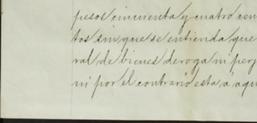 pesos cincuenta y cuatro cen
tos sin que se entienda que
ral de bienes deroga ni perj
ni por el contrario esta a aqu